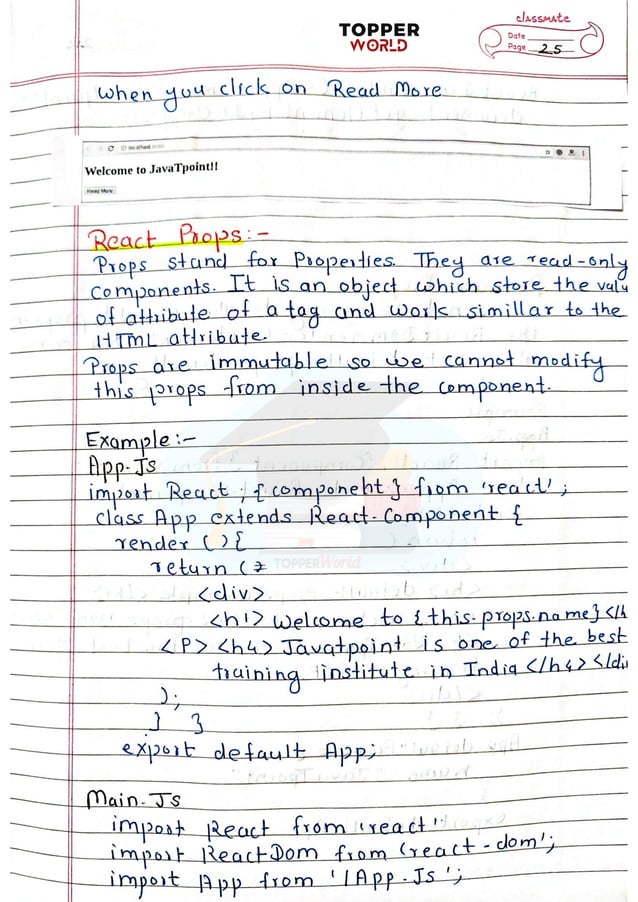 TOPPER
WORLD
classmate
Date
Page 25
when you click on Read More
localhost
Welcome to JavaTpoint!!
Read More
React Props:-
Props stand for Properties. They are read-only
components. It is an object which store the valu
of attribute of a tag and work simillar to the
HTML attribute.
Props are immutable so we cannot modify
this props from inside the component.
Example:-
App.Js
import React, {component} from 'react';
class App extends React.Component {
render () {
return (
<div>
<h1> Welcome to {this.props.name}</h
<P> <h4> Javatpoint is one of the best
training institute in India </h4> </di
);
} }
export default App;
TOPPERWorld
Main.Js
import React from 'react'
import ReactDom from 'react-dom';
import App from '/App.Js';